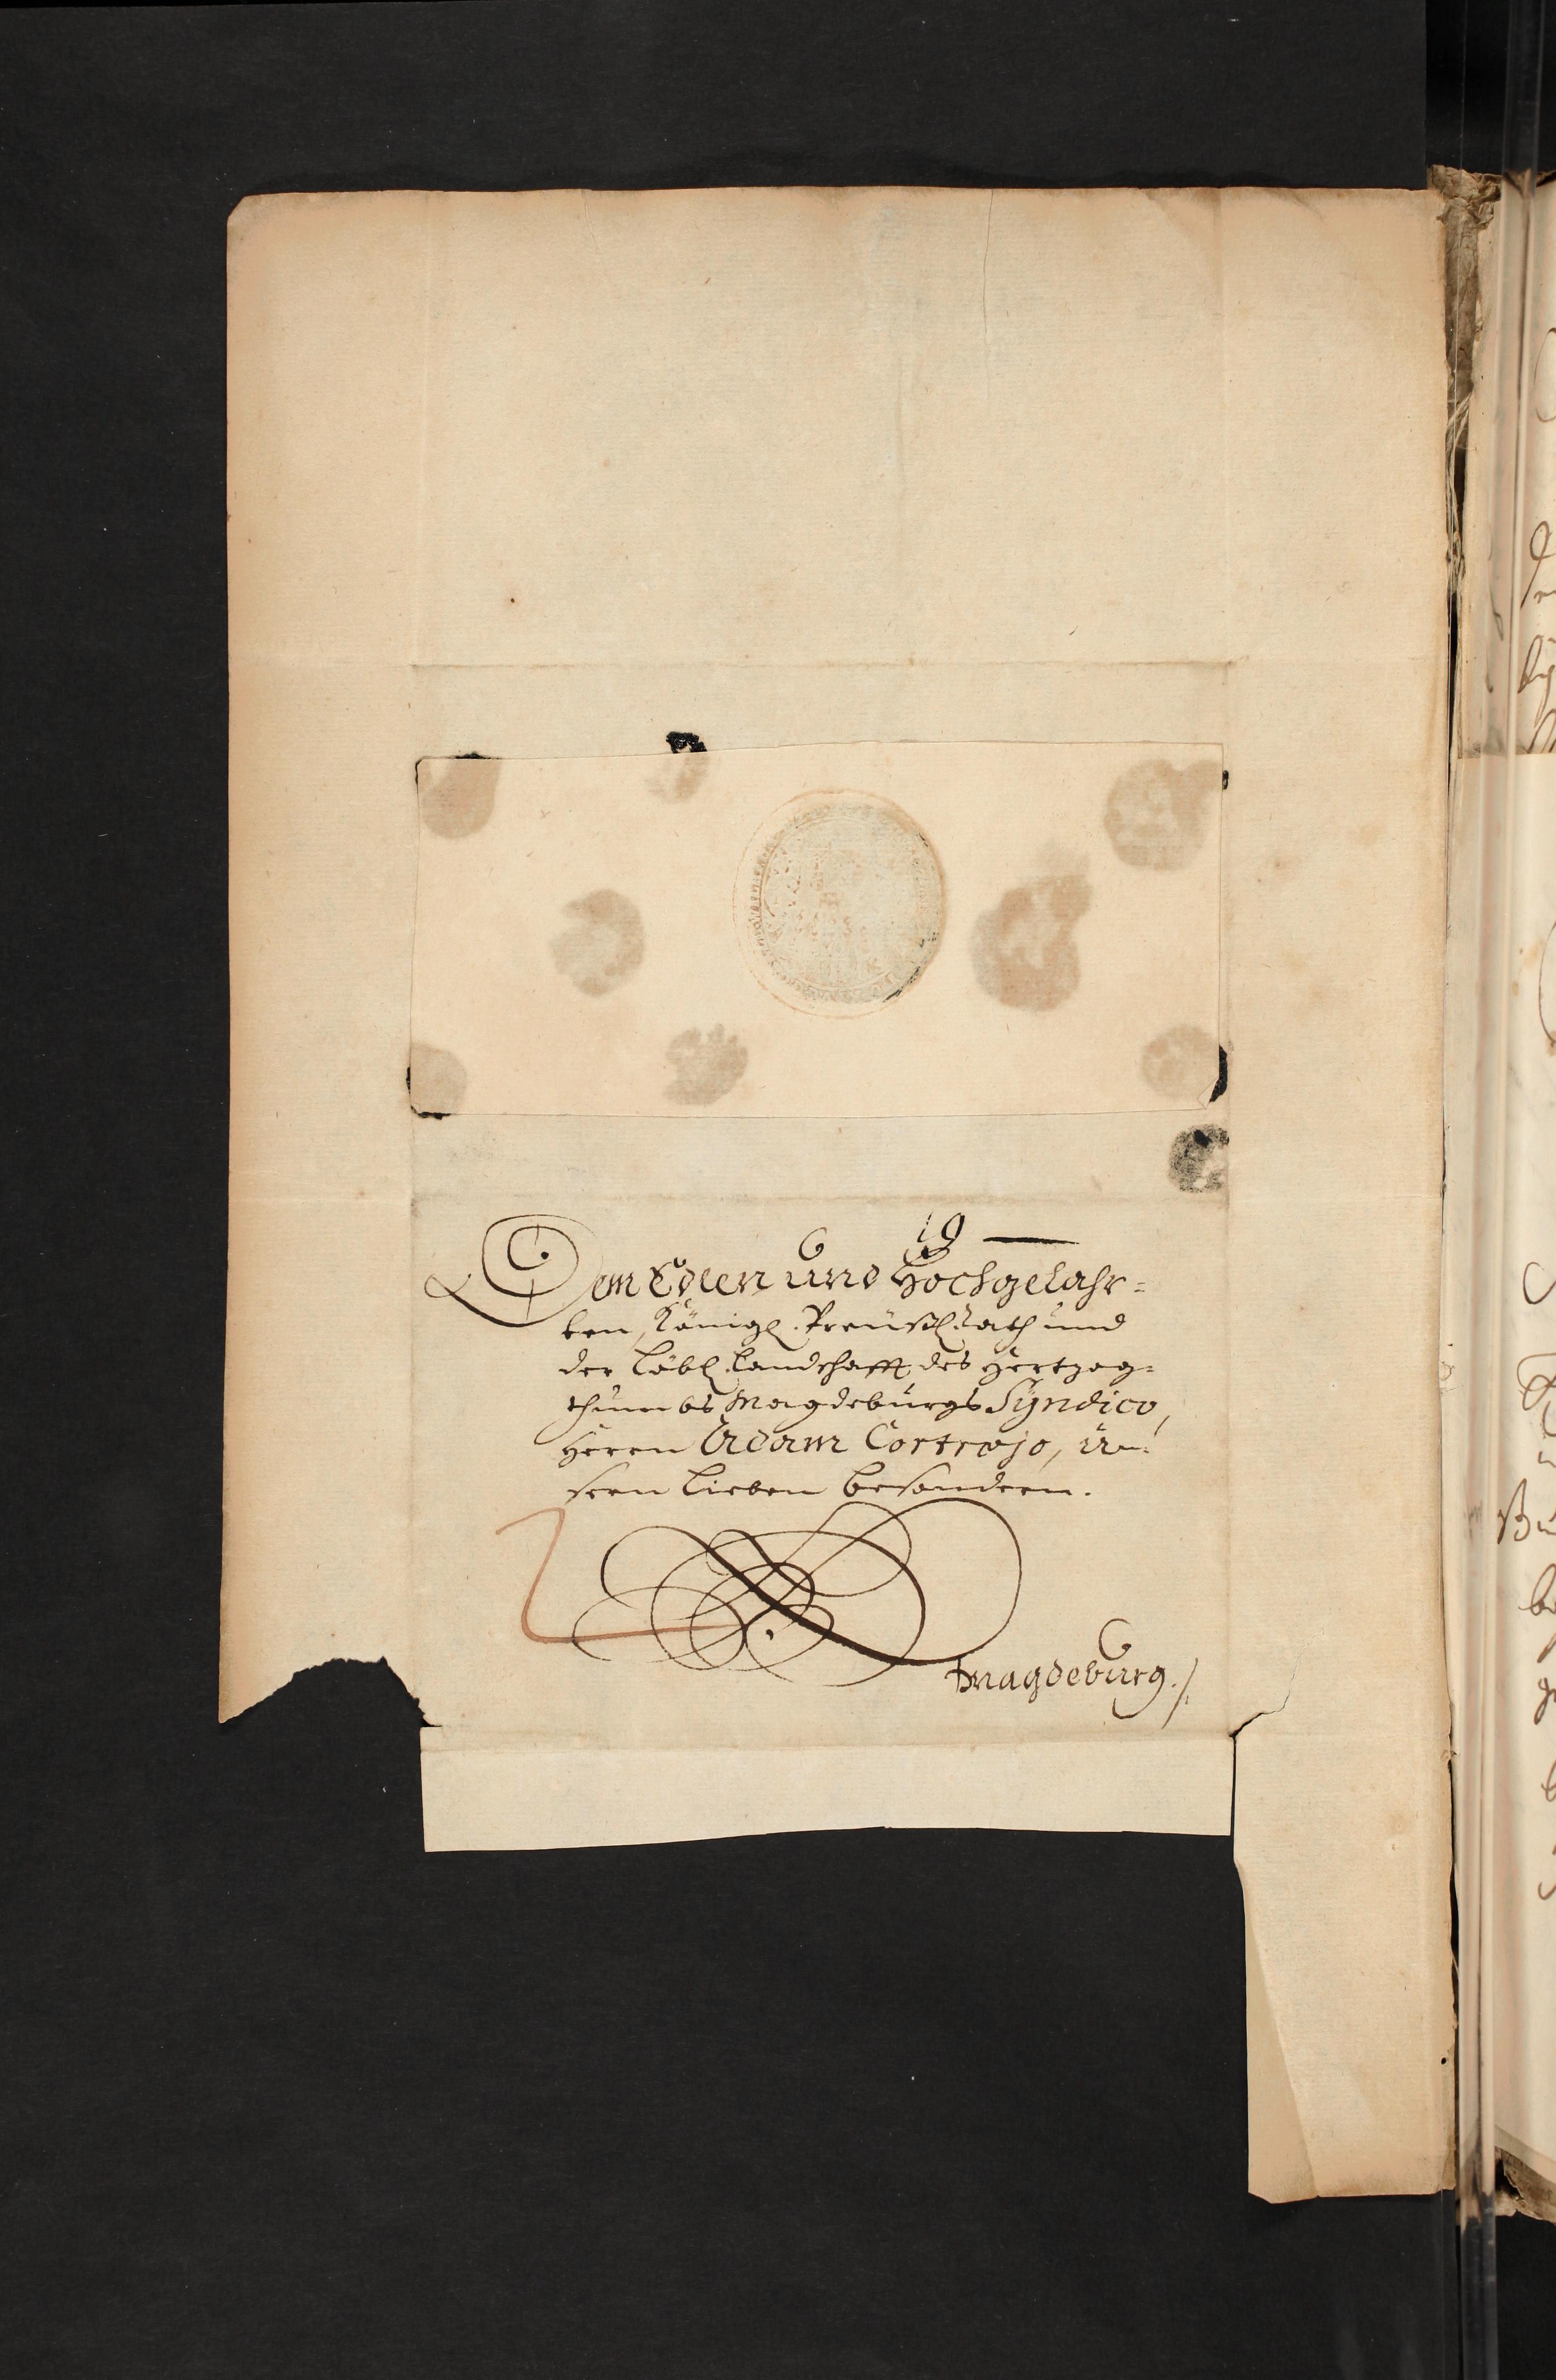 Dem Edlen und Hochgelahr=
ten, Königl. Preüßl. Rath und
der Löbl. Landschafft des Hertzog=
thumbs Magdeburgs Syndico,
Herrn Adam Cortrejo, un=
sern lieben besondern.
Magdeburg./.